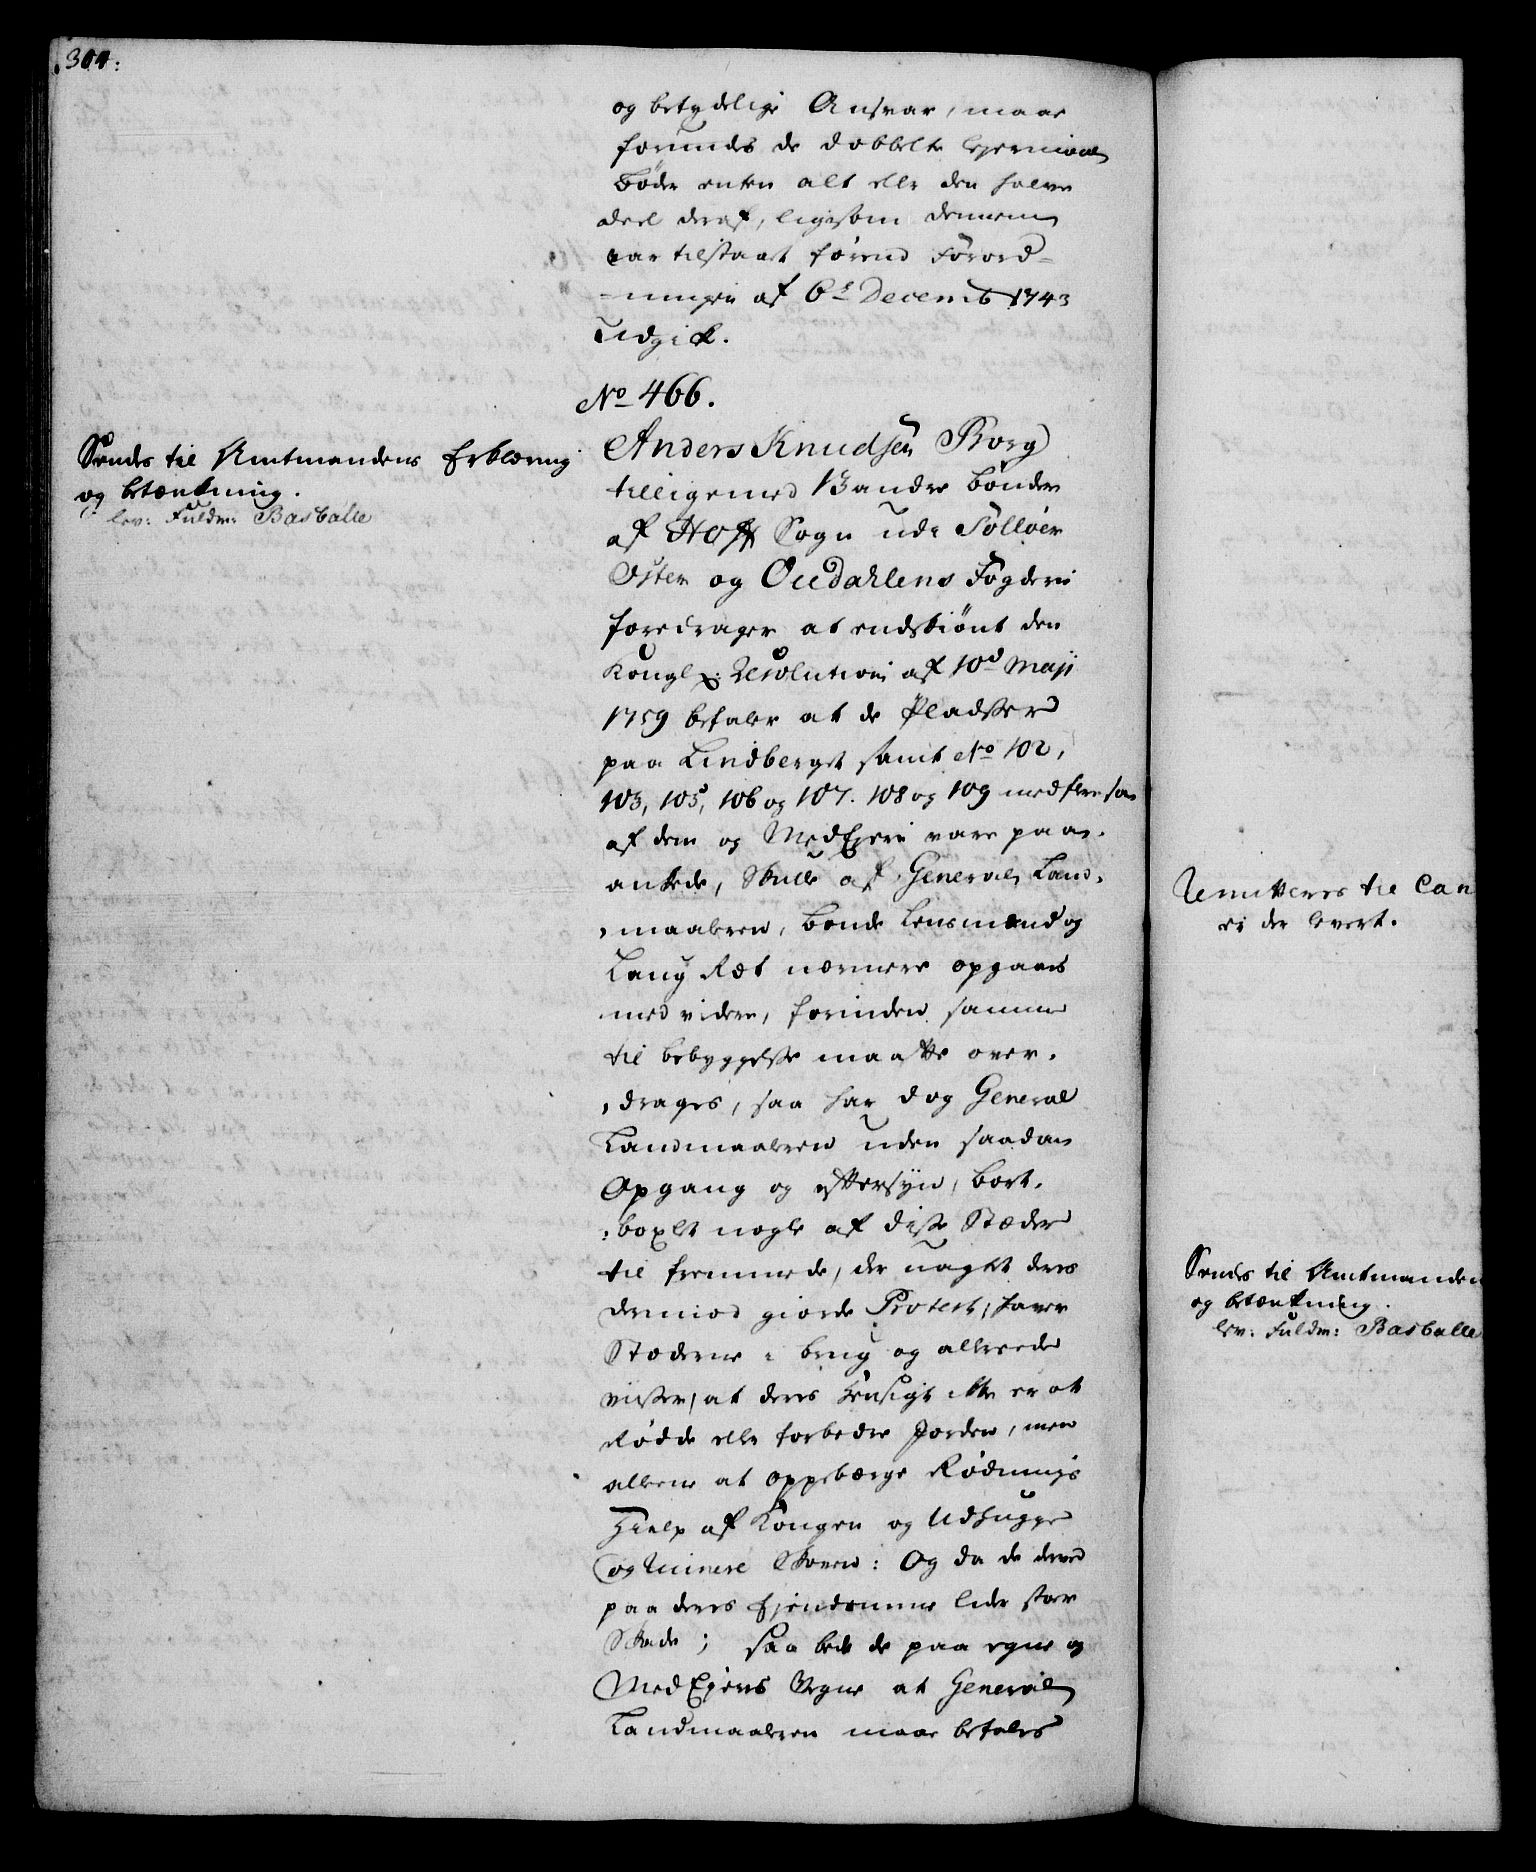 304:
og betydelige Ansvar, maae
forundes de dobbelte Lejermaals
Bøder enten alt eller den halve
deel deraf, ligesom dennem
var tilstaaet førend Forord-
-ningen af 6te Decemb 1743
Udgik.
No 466.
Sendes til Amtmandens Erklæring
og betænkning.
lev: Fuldm: Basballe
Anders Knudsen Borg
tilligemed 13 andre bønder
af Hoff Sogn udi Solløer
Østen og Oudahlens Fogderi
foredrager at endskiønt den
Kongl: Resolution af 10d Maji
1759 befaler at de Pladser
paa Lindberget samt No 102,
103, 105, 106 og 107. 108 og 109 med flere som
af dem og MedEjere vare paa-
ankede, Skulle af General Land-
-maaleren, Bonde Lensmand og
Laug Ræt nærmere opgaaes
med videre, forinden samme
til bebyggelse maatte over-
-drages, saa har dog General
Landmaaleren uden saadan
Opgang og eftersyn, bort-
-boxlet nogle af disse Stæder
til fremmede, der uagtet deres
derimod giorde Protest, haver
Stæderne i brug og allerede
viiser, at deres Hensigt ikke er at
Rødde eller forbedre Jorden, men
allene at oppebærge Rødnings
Hielp af Kongen og Udhugge
og Ruinere Skoven: Og da de derved
paa deres Ejendomme lider stor
Skade; saa bede de paa egne og
MedEjeres Vegne at General
Landmaaleren maae befales
Remitteres til Can
ei der lever.
Sendes til Amtmanden
og betænkning.
lev: Fuldm: Basballe